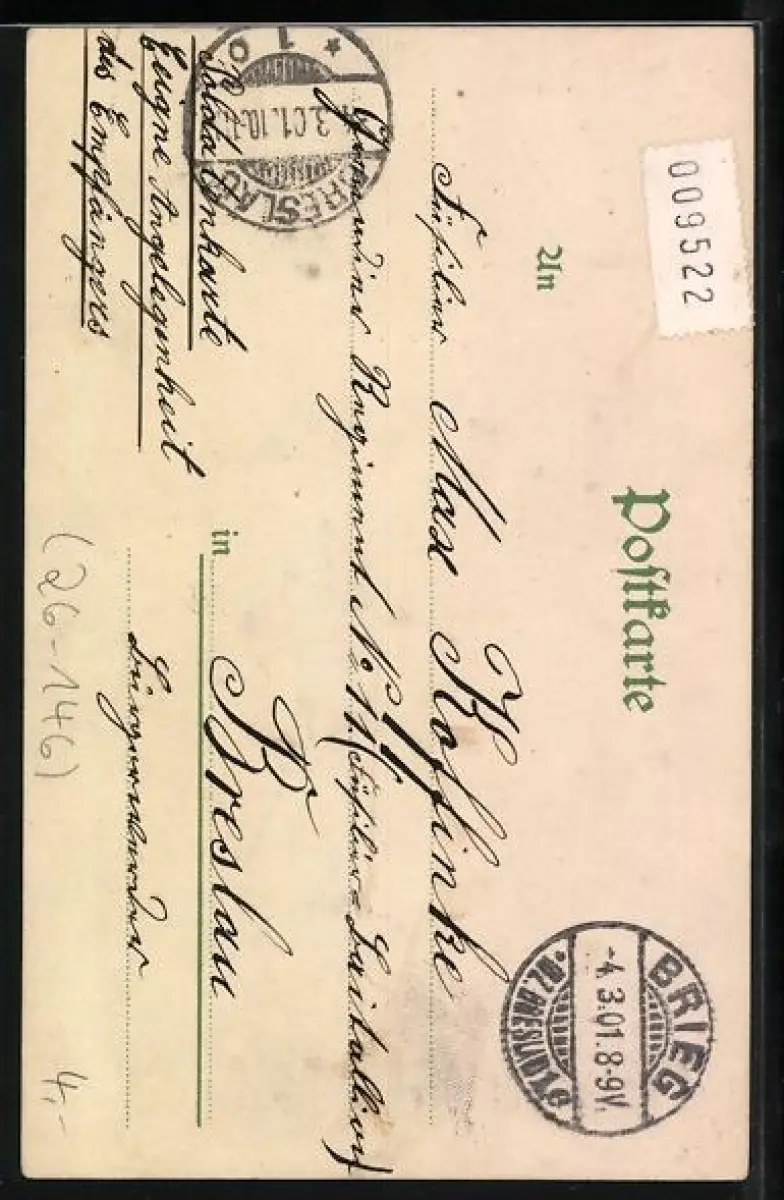 009522
Postkarte
An
BRIEG
-4.3.01.8-9V.
*BZ. BRESLAU*c
Füsilier Max Koffinke
Grenadier Regiment No. 11. (Füsilier-Bataillon)
in Breslau
Bürgerwerder
1 c *
3.01.10-
BRESLAU
Soldatenkarte
Eigne Angelegenheit
des Empfängers
(26-146)
4,-